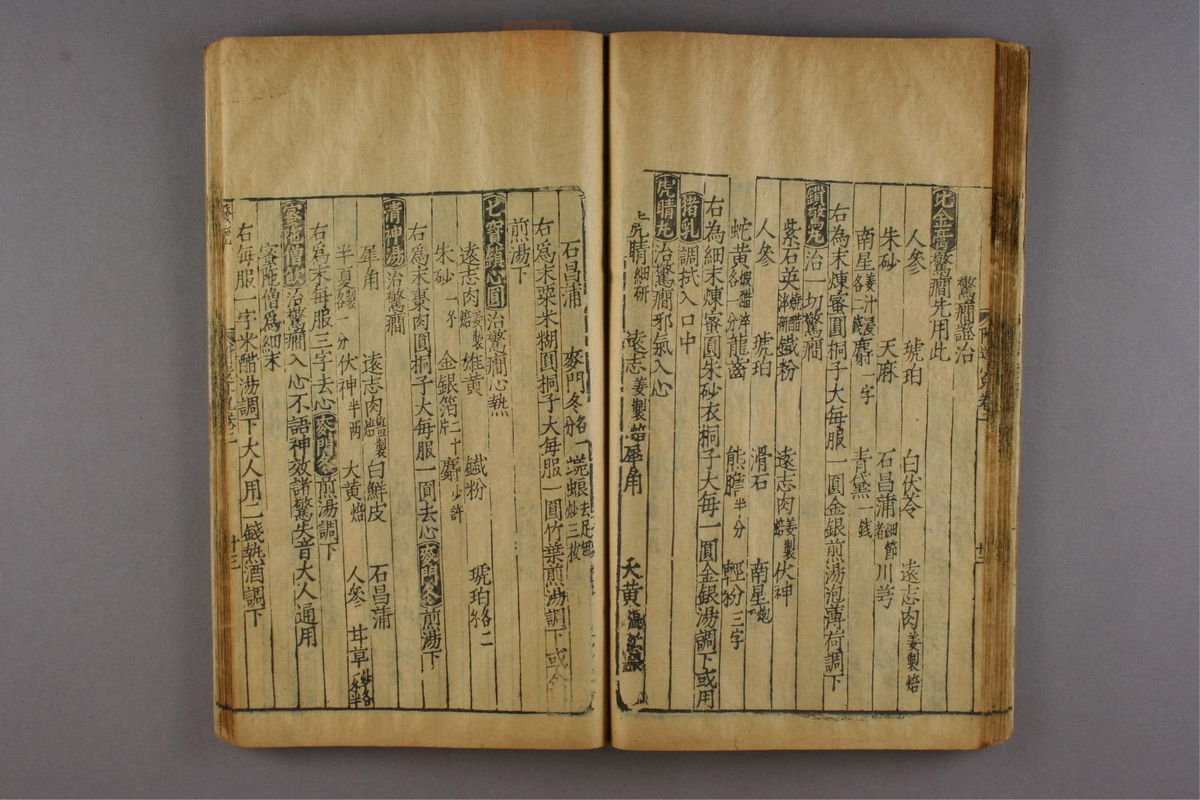 驚癎證治
比金膏驚癎先用此
人參 琥珀 白伏苓 遠志肉姜製焙
朱砂 天麻 石昌蒲細節者 川芎
南星姜汁浸各二錢 麝一字 青黛一錢
右為末煉蜜圓桐子大每服一圓金銀煎湯泡薄荷調下
鎖驚丸治一切驚癎
紫石英燒醋淬研 鐵粉 遠志肉姜製焙 伏神
人參 琥珀 滑石 南星炮
蛇黃煅醋淬各一分 龍齒 熊膽半分 輕粉三字
右為細末煉蜜圓朱砂衣桐子大每一圓金銀湯調下或用
猪乳調拭入口中
虎睛丸治驚癎邪氣入心
虎睛細研 遠志姜製焙 犀角 大黃
石昌蒲 麥門冬各一分 蜣蜋去足炒三枚
右爲末粟米糊圓桐子大每服一圓竹葉煎湯調下或
煎湯下
七寶鎮心圓治驚癎心熱
遠志肉姜製焙 雄黃 鐵粉 琥珀各二
朱砂一分 金銀箔二十片 麝少許
右爲末棗肉圓桐子大每服一圓去心麥門冬煎湯下
清神湯治驚癎
犀角 遠志肉薑製焙 白鮮皮 石昌蒲
半夏 各一分 伏神半两 大黃焙 人參 甘草
右爲末每服三字去心麥門冬煎湯調下
蜜陀僧散治驚癎入心不語神效諸驚失音大人通用
蜜陀僧爲細末
右每服一字米醋湯調下大人用二錢熱酒調下
十三